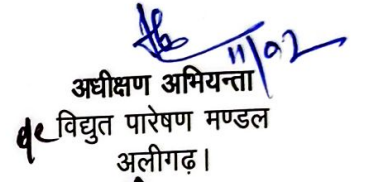 11/02
अधीक्षण अभियन्ता
विद्युत पारेषण मण्डल
अलीगढ़।